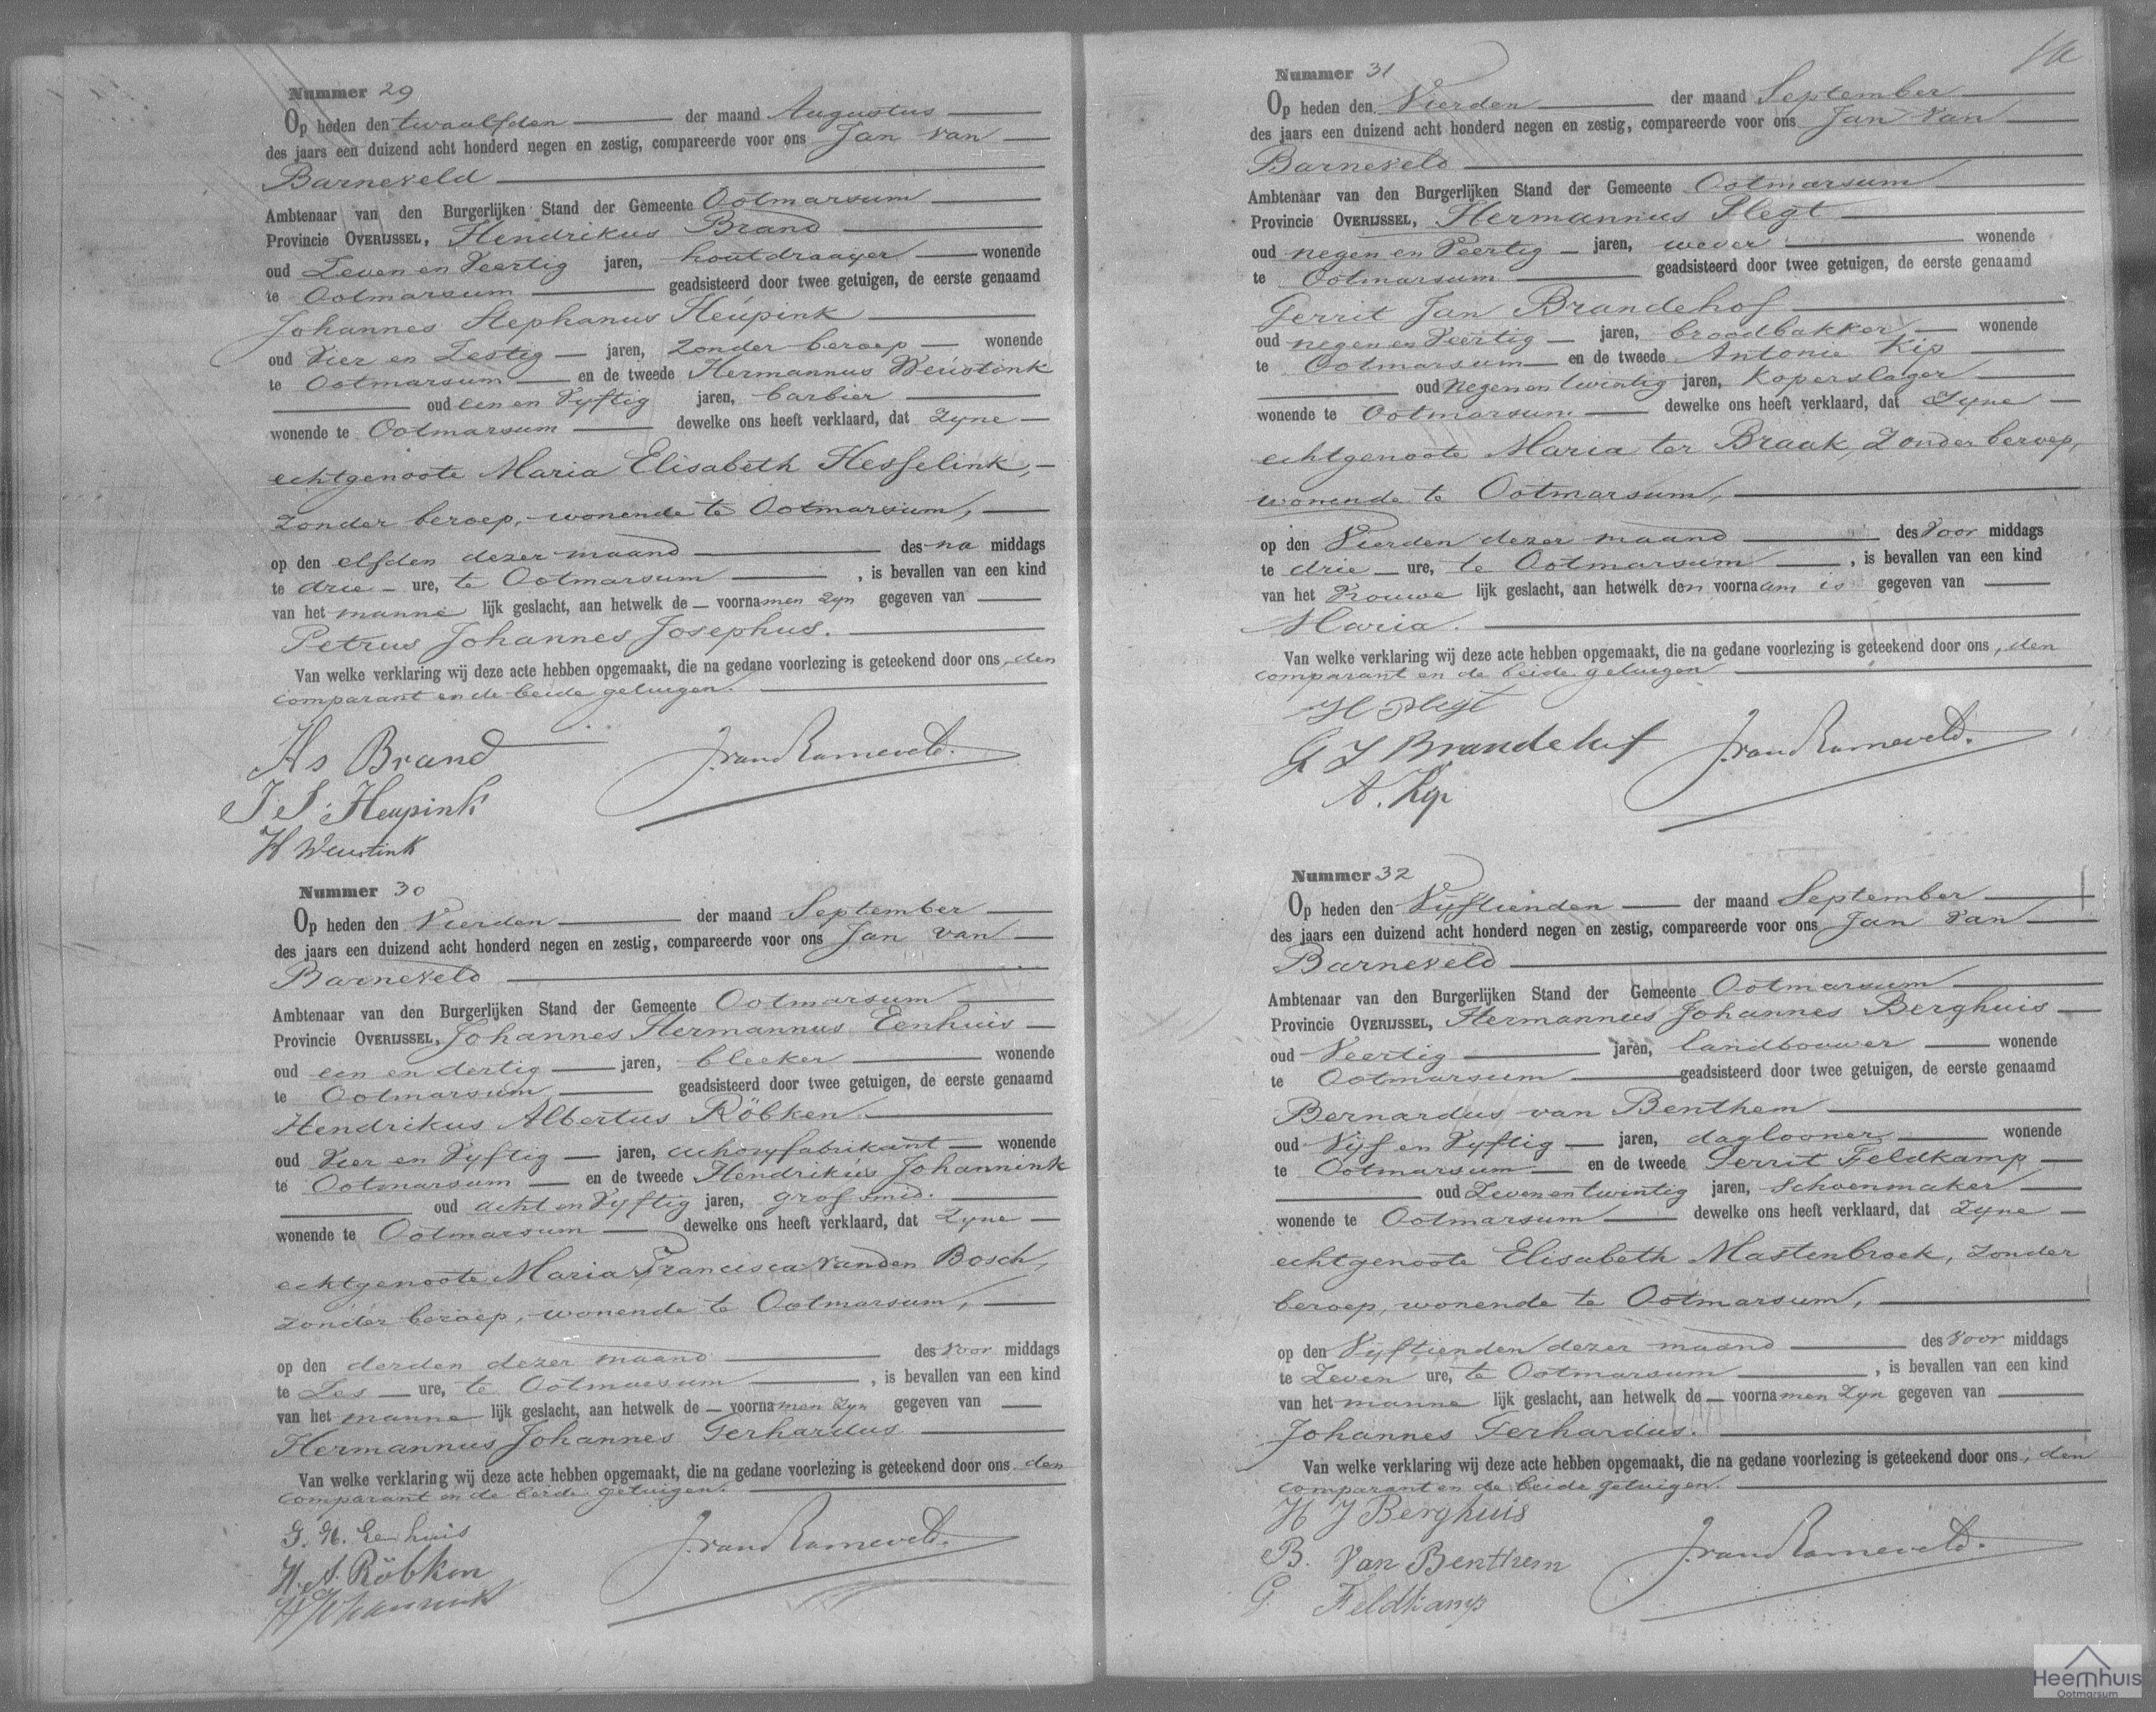 Nummer 29
Op heden den twaalfden der maand Augustus
des jaars een duizend acht honderd negen en zestig, compareerde voor ons Jan van
Barneveld
Ambtenaar van den Burgerlijken Stand der Gemeente Ootmarsum
Provincie OVERIJSSEL, Hendrikus Brand
oud Zeven en Veertig jaren, houtdraayer wonende
te Ootmarsum geadsisteerd door twee getuigen, de eerste genaamd
Johannes Stephanus Heupink
oud Vier en Zestig jaren, Zonder beroep wonende
te Ootmarsum en de tweede Hermannus Weustink
oud een en Vyftig jaren, barbier
wonende te Ootmarsum dewelke ons heeft verklaard, dat Zyne
echtgenoote Maria Elisabeth Hesselink,
Zonder beroep, wonende te Ootmarsum,
op den elfden dezer maand des na middags
te drie ure, te Ootmarsum, is bevallen van een kind
van het manne lijk geslacht, aan hetwelk de voornamen zyn gegeven van
Petrus Johannes Josephus.
Van welke verklaring wij deze acte hebben opgemaakt, die na gedane voorlezing is geteekend door ons, den
comparant en de beide getuigen.
Hs Brand
J. van Barneveld.
J S. Heupink
H Weustink
Nummer 30
Op heden den Vierden der maand September
des jaars een duizend acht honderd negen en zestig, compareerde voor ons Jan van
Barneveld
Ambtenaar van den Burgerlijken Stand der Gemeente Ootmarsum
Provincie OVERIJSSEL, Johannes Hermannus Eenhuis
oud een en dertig jaren, bleeker wonende
te Ootmarsum geadsisteerd door twee getuigen, de eerste genaamd
Hendrikus Albertus Röbken
oud Vier en Vyftig jaren, wonende
te Ootmarsum en de tweede Hendrikus Johannink
oud acht en Vyftig jaren, grofsmid.
wonende te Ootmarsum dewelke ons heeft verklaard, dat Zyne
echtgenoote Maria Francisca van den Bosch,
Zonder beroep, wonende te Ootmarsum,
op den derden dezer maand des voor middags
te Zes ure, te Ootmarsum, is bevallen van een kind
van het manne lijk geslacht, aan hetwelk de voornamen zyn gegeven van
Hermannus Johannes Gerhardus
Van welke verklaring wij deze acte hebben opgemaakt, die na gedane voorlezing is geteekend door ons den
comparant en de beide getuigen.
Eenhuis
J. van Barneveld.
H. A. Röbken
Nummer 31
Op heden den Vierden der maand September
des jaars een duizend acht honderd negen en zestig, compareerde voor ons Jan van
Barneveld
Ambtenaar van den Burgerlijken Stand der Gemeente Ootmarsum
Provincie OVERIJSSEL, Hermannus Plegt
oud negen en Veertig jaren, wever wonende
te Ootmarsum geadsisteerd door twee getuigen, de eerste genaamd
Gerrit Jan Brandehof
oud negen en Veertig jaren, broodbakker wonende
te Ootmarsum en de tweede Antonie Kip
oud negen en twintig jaren, Koperslager
wonende te Ootmarsum dewelke ons heeft verklaard, dat Zyne
echtgenoote Maria ter Braak, Zonder beroep,
wonende te Ootmarsum,
op den Vierden dezer maand des Voor middags
te drie ure, te Ootmarsum, is bevallen van een kind
van het Vrouwe lijk geslacht, aan hetwelk den voornaam is gegeven van
Maria.
Van welke verklaring wij deze acte hebben opgemaakt, die na gedane voorlezing is geteekend door ons, den
comparant en de beide getuigen
H Plegt
G J Brandehof
J. van Barneveld.
A. Kip
Nummer 32
Op heden den Vyftienden der maand September
des jaars een duizend acht honderd negen en zestig, compareerde voor ons Jan van
Barneveld
Ambtenaar van den Burgerlijken Stand der Gemeente Ootmarsum
Provincie OVERIJSSEL, Hermannus Johannes Berghuis
oud Veertig jaren, landbouwer wonende
te Ootmarsum geadsisteerd door twee getuigen, de eerste genaamd
Bernardus van Benthem
oud Vyf en Vyftig jaren, daglooner wonende
te Ootmarsum en de tweede Gerrit Feldkamp
oud Zeven en twintig jaren, Schoenmaker
wonende te Ootmarsum dewelke ons heeft verklaard, dat Zyne
echtgenoote Elisabeth Mastenbroek, Zonder
beroep, wonende te Ootmarsum,
op den Vyftienden dezer maand des Voor middags
te Zeven ure, te Ootmarsum, is bevallen van een kind
van het manne lijk geslacht, aan hetwelk de voornamen Zyn gegeven van
Johannes Gerhardus.
Van welke verklaring wij deze acte hebben opgemaakt, die na gedane voorlezing is geteekend door ons, den
comparant en de beide getuigen.
H J Berghuis
B. Van Benthem
J. van Barneveld.
G Feldkamp
Heemhuis
Ootmarsum